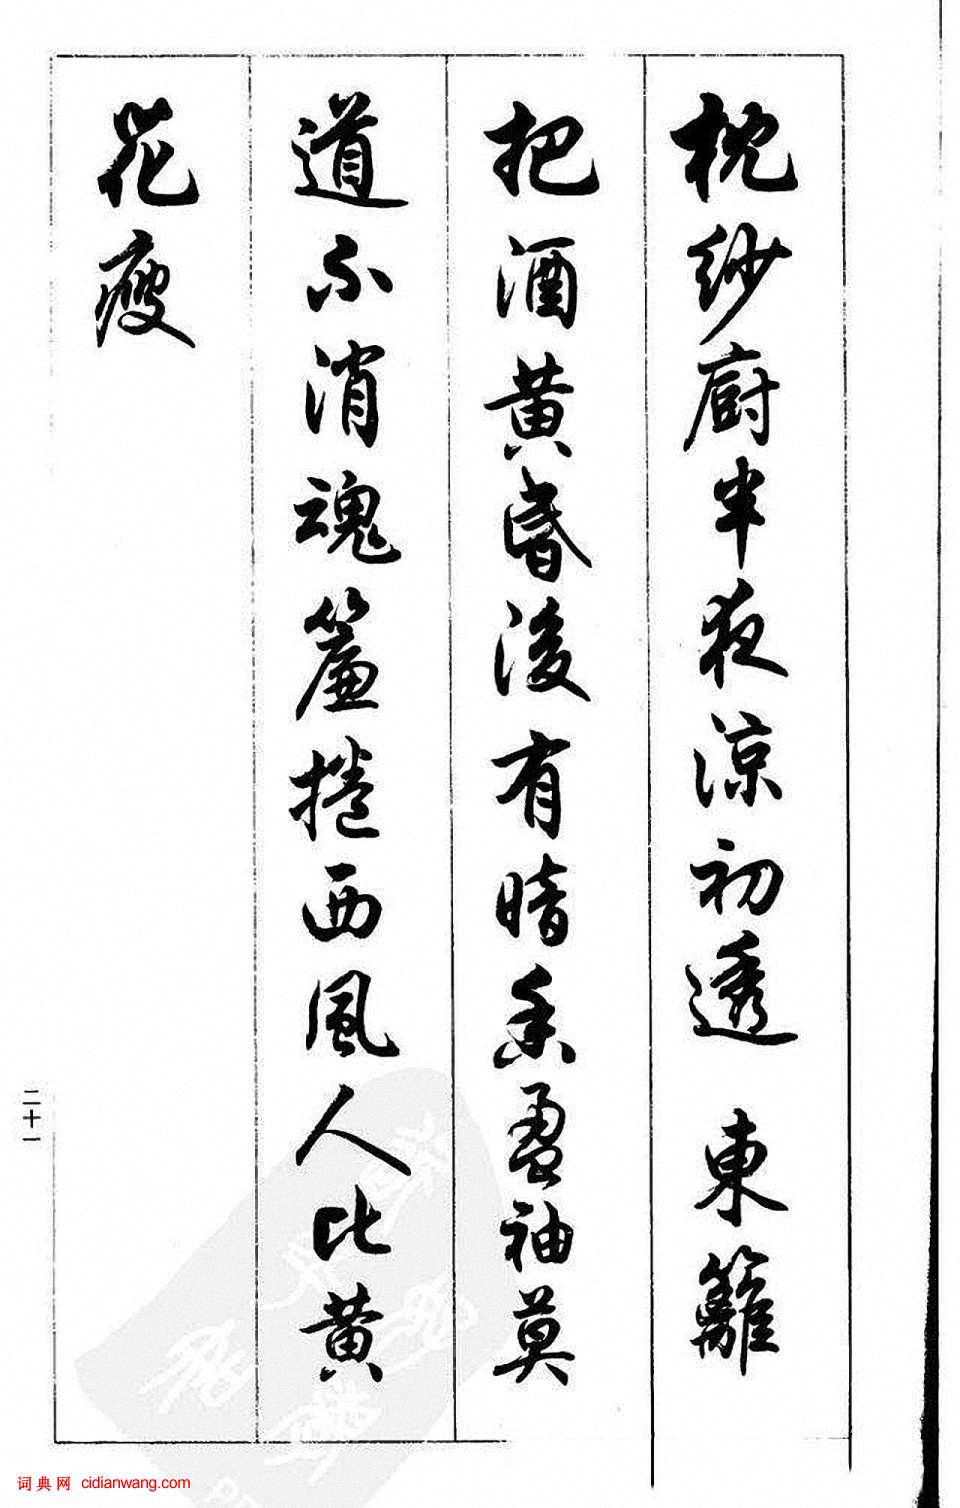 枕紗廚半夜涼初透 東籬
把酒黃昏後有暗香盈袖莫
道不消魂簾捲西風人比黃
花瘦
二十一
词典网 cidianwang.com